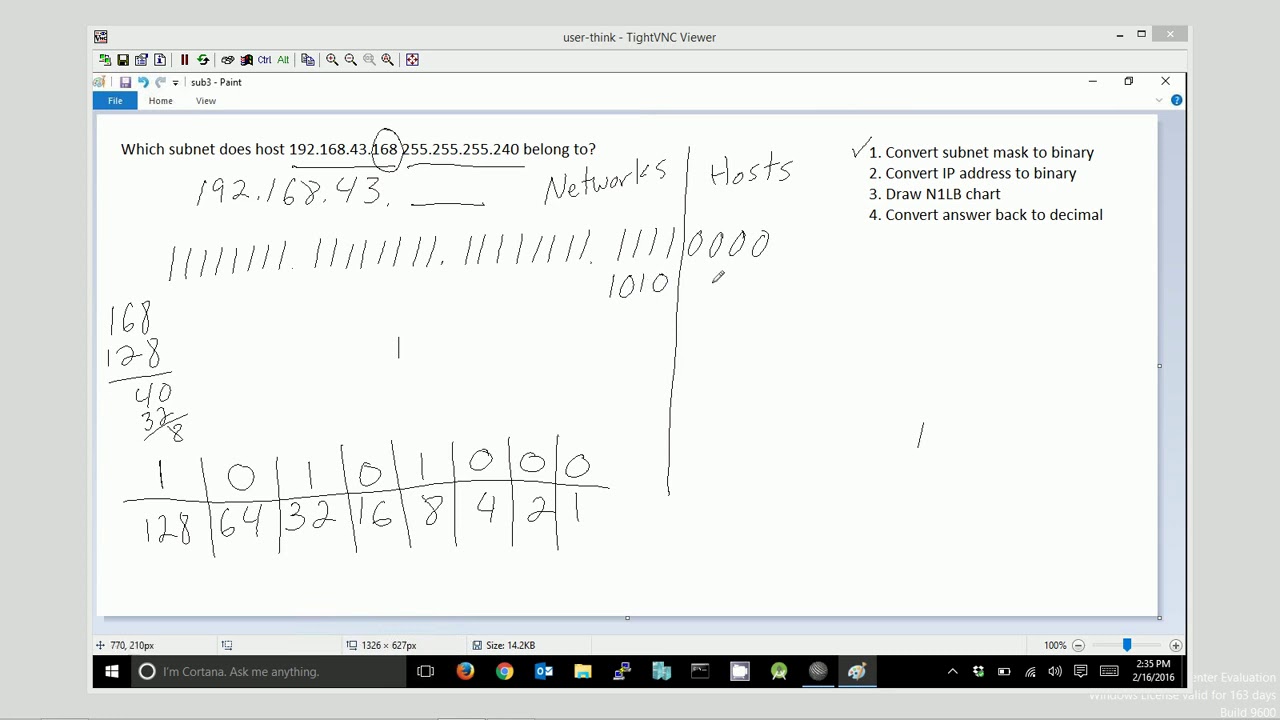 user-think - TightVNC Viewer
Ctrl Alt
sub3 - Paint
File Home View
Which subnet does host 192.168.43.168 255.255.255.240 belong to?
192.168.43. ____ Networks Hosts
1. Convert subnet mask to binary
2. Convert IP address to binary
3. Draw N1LB chart
4. Convert answer back to decimal
11111111. 11111111. 11111111. 1111 0000
1010
168
128
40
32
8
1
1
1 0 1 0 1 0 0 0
128 64 32 16 8 4 2 1
770, 210px 1326 × 627px Size: 14.2KB 100%
I'm Cortana. Ask me anything.
2:35 PM
2/16/2016
enter Evaluation
Windows License valid for 163 days
Build 9600